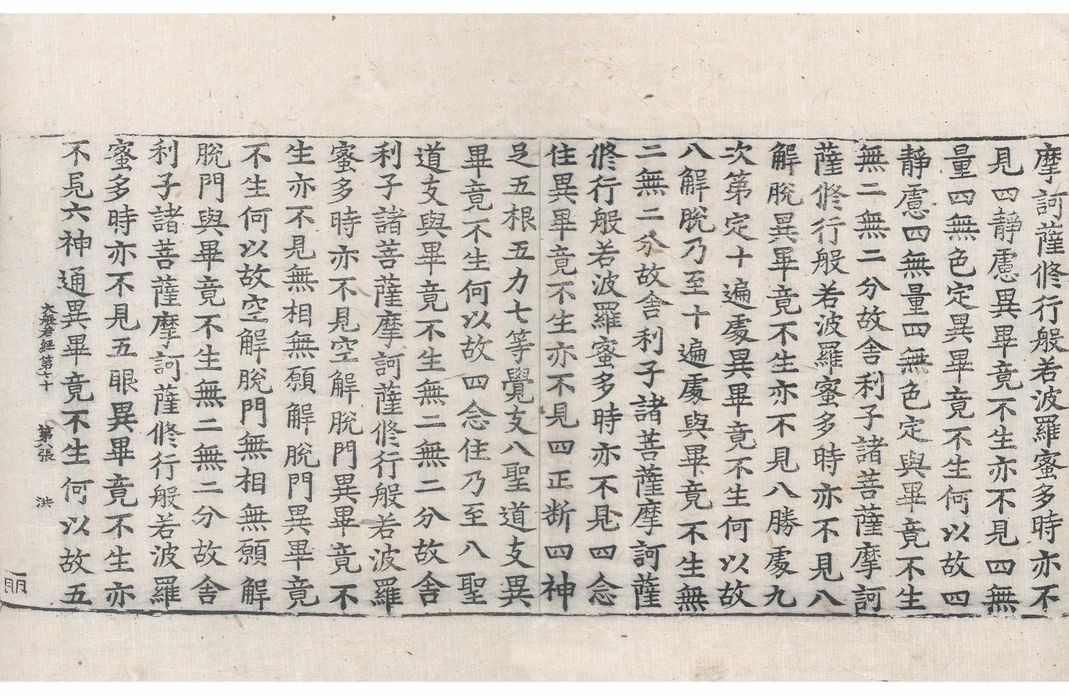 摩訶薩修行般若波羅蜜多時亦不
見四靜慮異畢竟不生亦不見四無
量四無色定異畢竟不生何以故四
靜慮四無量四無色定與畢竟不生
無二無二分故舍利子諸菩薩摩訶
薩修行般若波羅蜜多時亦不見八
解脫異畢竟不生亦不見八勝處九
次第定十遍處異畢竟不生何以故
八解脫乃至十遍處與畢竟不生無
二無二分故舍利子諸菩薩摩訶薩
修行般若波羅蜜多時亦不見四念
住異畢竟不生亦不見四正断四神
足五根五力七等覺支八聖道支異
畢竟不生何以故四念住乃至八聖
道支與畢竟不生無二無二分故舍
利子諸菩薩摩訶薩修行般若波羅
蜜多時亦不見空解脫門異畢竟不
生亦不見無相無願解脫門異畢竟
不生何以故空解脫門無相無願解
脫門與畢竟不生無二無二分故舍
利子諸菩薩摩訶薩修行般若波羅
蜜多時亦不見五眼異畢竟不生亦
不見六神通異畢竟不生何以故五
大般若經第七十 第六張 洪